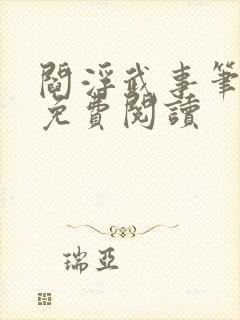 閻浮武事筆
免費閱讀
瑞亞